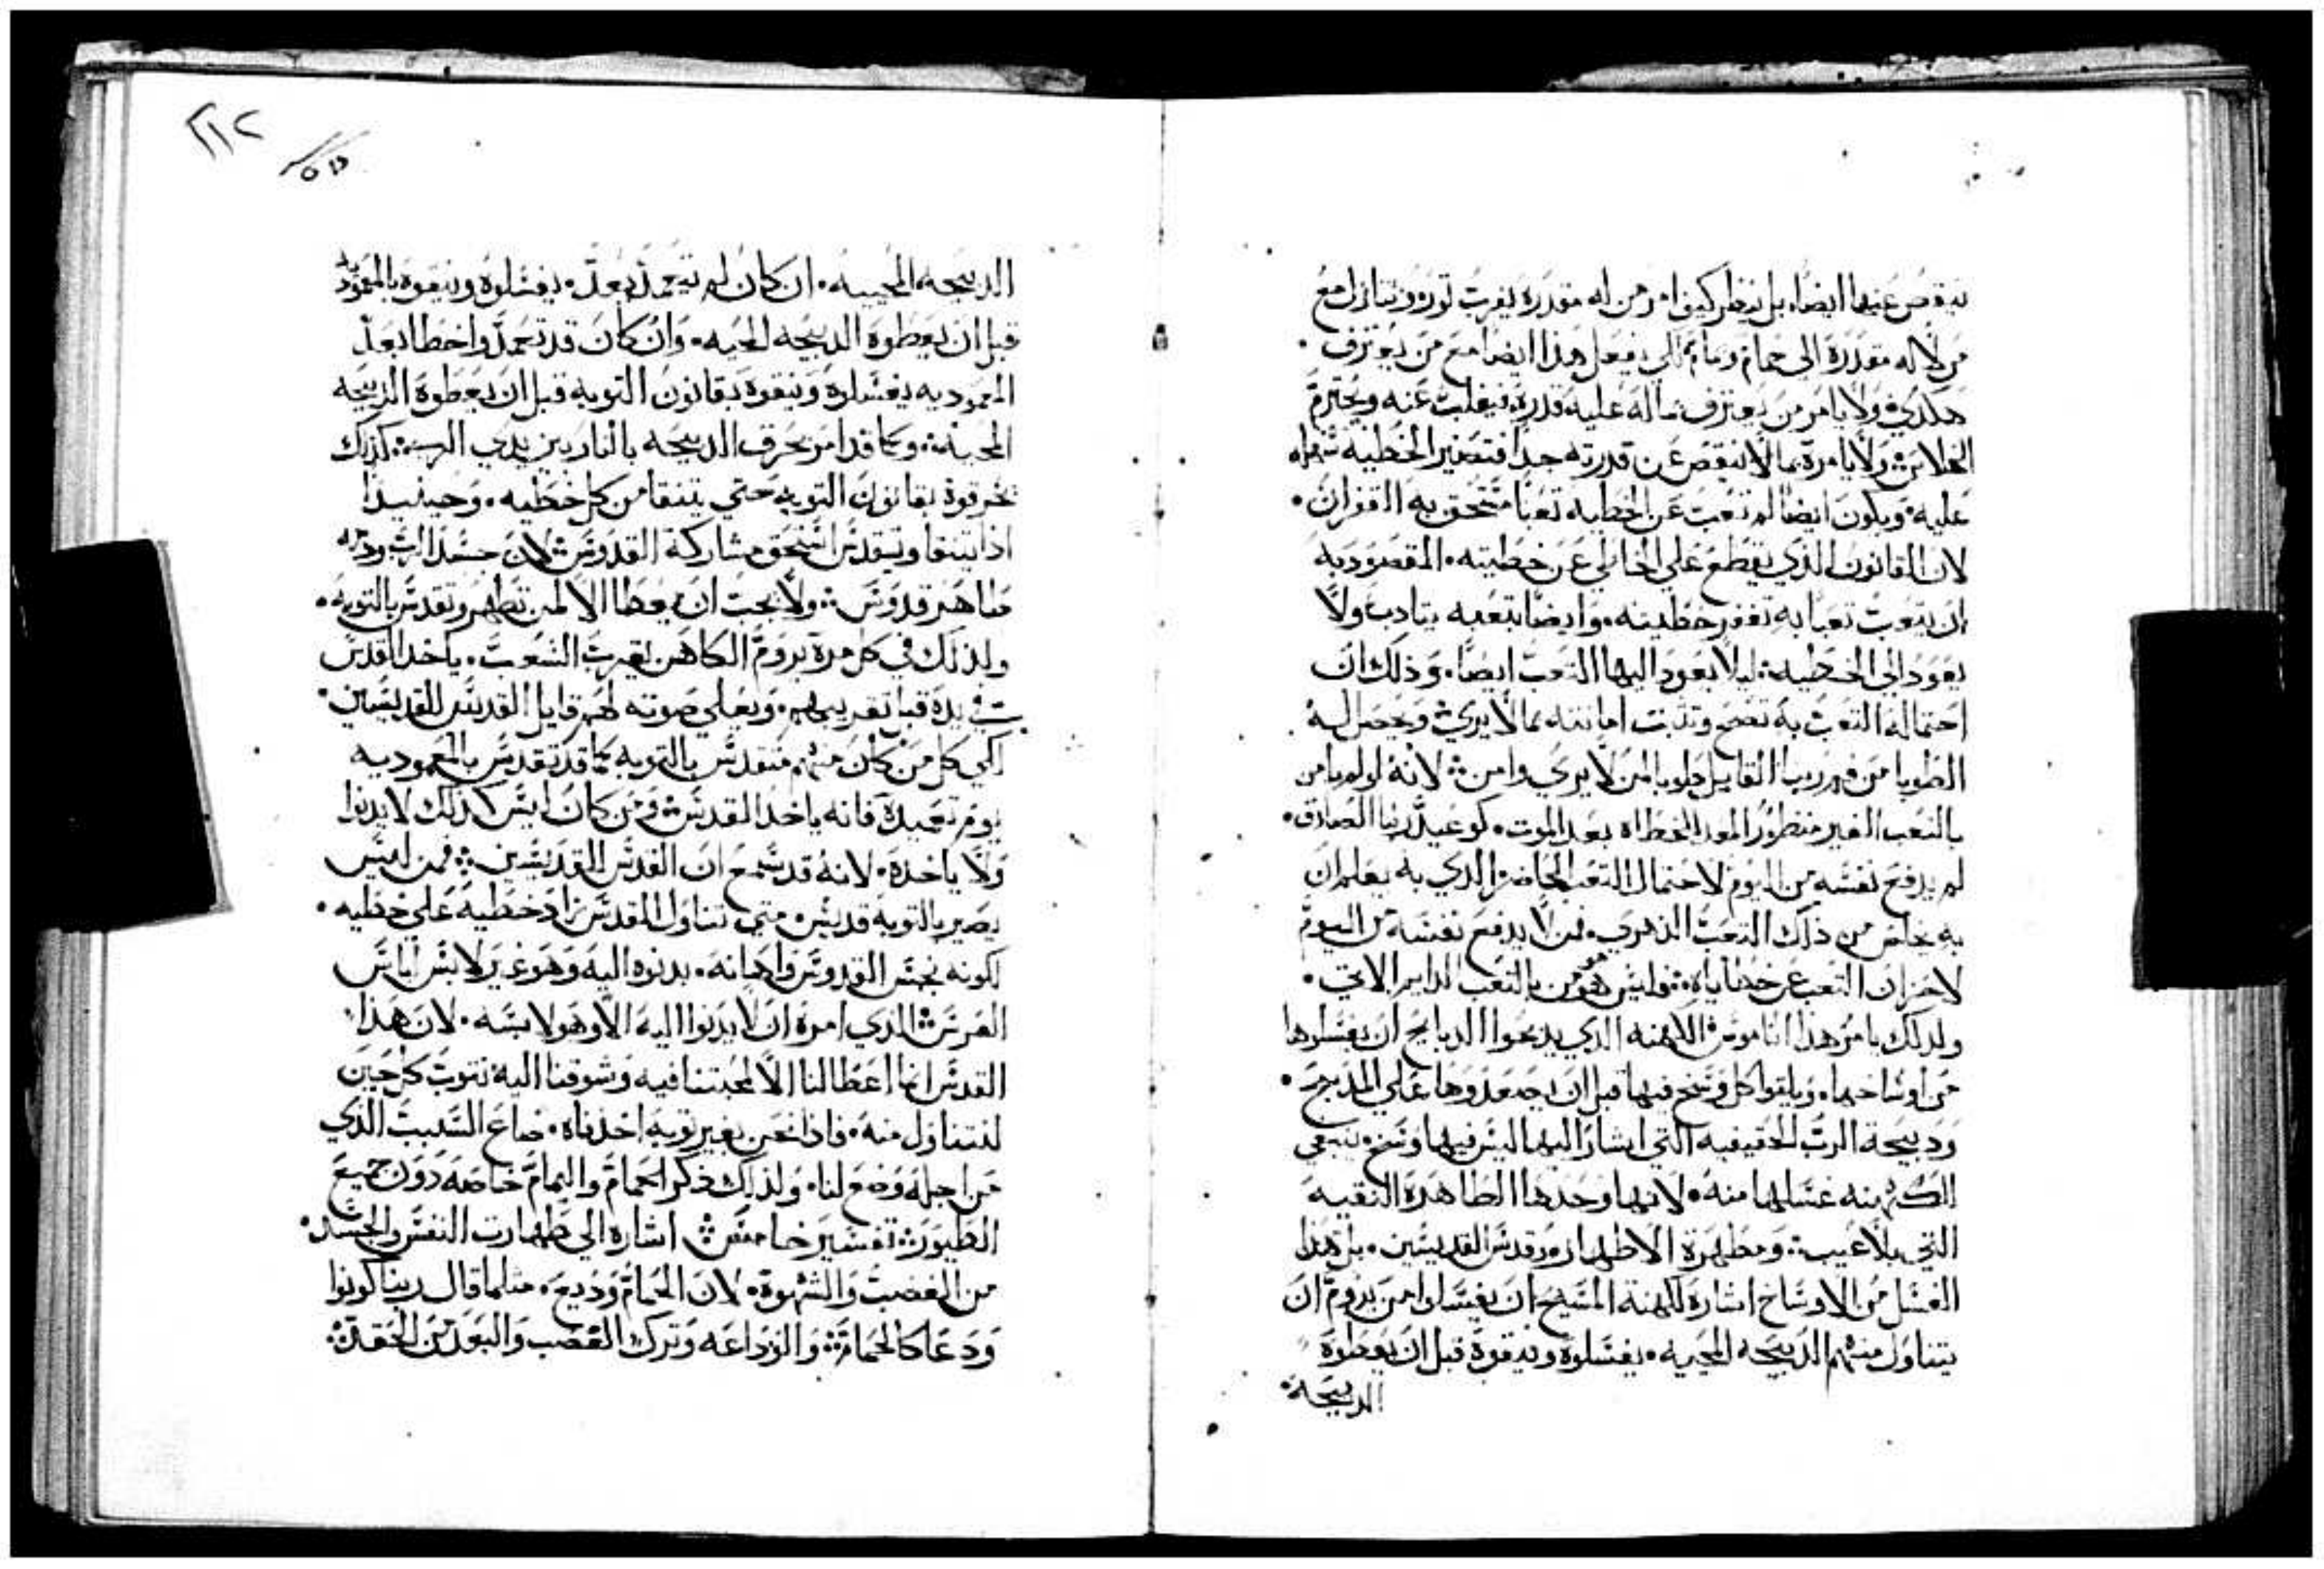 ينقص عنها ايضا بل ينظر كيف امر من له مقدرة يقرب ثور وتنازل مع
من لا له مقدرة الى حمام ويمام لكي يفعل هذا ايضا مع من يعترف
هكدي ولا يامر من يعترف بما له عليه قدرة فيغلب عنه ويحترم
الخلاص ولا يامره بما لا ينقص عن قدرته جدا فتصير الخطيه سهله
عليه ويكون ايضا لم تعب عن الخطيه تعبا مستحق به الغفران
لان القانون الذي يقطع علي الخاطي عن خطيته المقصود به
ان يتعب تعبا به تغفر خطيته وايضا بتعبه يتادب ولا
يعود الى الخطيه ليلا يعود اليها التعب ايضا وذلك ان
احتماله التعب به تصح وتثبت امانته بما لا يري ويحصل له
الطوبا من فم ربنا القايل طوبا لمن لا يري وامن لانه لو لم يامن
بالتعب الغير منظور المعد للخطاه بعد الموت كوعيد ربنا الصادق
لم يدفع نفسه من اليوم لاحتمال التعب الحاضر الدي به يعلم ان
به يخلص من ذلك التعب الدهري فمن لا يدفع نفسه من اليوم
لاحزان التعب عن خطاياه وليس هو مومن بالتعب الدايم الاتي
ولدلك يامر هذا الناموس الكهنه الدي يدبحوا الدبايح ان يغسلوها
من اوساخها ويلقوا كل وسخ فيها قبل ان يصعدوها علي المدبح
ودبيحة الرب الحقيقيه التي اشار اليها ليس فيها وسخ ينبغي
الكهنه غسلها منه لانها وحدها الطاهرة النقيه
التي بلا عيب ومطهرة الاطهار وقدس القديسين بل هذا
الغسل من الاوساخ اشاره لكهنة المسيح ان يغسلوا من يروم ان
يتناول منهم الدبيحه المحييه يغسلوه وينقوة قبل ان يعطوة
الدبيحة
٢١٢
الدبيحه المحييه ان كان لم يتعمد بعد يغسلوة وينقوة بالمعموديه
قبل ان يعطوة الدبيحه المحييه وان كان قد تعمد واخطا بعد
المعموديه يغسلوة وينقوة بقانون التوبه قبل ان يعطوة الدبيحه
المحييه وكما قد امر بحرق الدبيحه بالنار بين يدي الرب كذلك
نحرقوة بقانون التوبه حتي يتنقا من كل خطيه وحينيدا
اذا يتنقا ويتقدس استحق مشاركة القدوس لان جسد الرب ودمه
طاهر قدوس ولا يجب ان يعطا الا لمن تطهر وتقدس بالتوبه
ولذلك في كل مرة يروم الكاهن يقرب الشعب ياخد القدس
بيده قبل تقريبهم ويعلي صوته لهم قايل القدس للقديسين
اكي كل من كان منهم متقدس بالتوبه كما قد تقدس بالمعموديه
يوم تعميده فانه ياخد القدس ومن كان ليس كذلك لا يدنوا
ولا ياخدة لانه قد سمع ان القدس للقديسين فمن ليس
يصير بالتوبه قديس متي تناول القدس زاد خطيه علي خطيه
لكونه نجس القدوس واهانه بدنوه اليه وهو غير لابس لباس
العرس الدي امره ان لا يدنوا اليه الا وهو لابسه لان هذا
القدس انما اعطا لنا الا لمحبتنا فيه وشوقنا اليه نتوب كل حين
لنتناول منه فاذا نحن بغير توبه اخدناه ضاع السبب الذي
من اجله وضع لنا ولذلك ذكر الحمام واليمام خاصه دون جميع
الطيور تفسير خامس اشاره الي طهارت النفس والجسد
من الغضب والشهوة لان الحمام وديع مثلما قال ربنا كونوا
ودعا كالحمام والوداعه وترك الغضب والبعد من الحقد